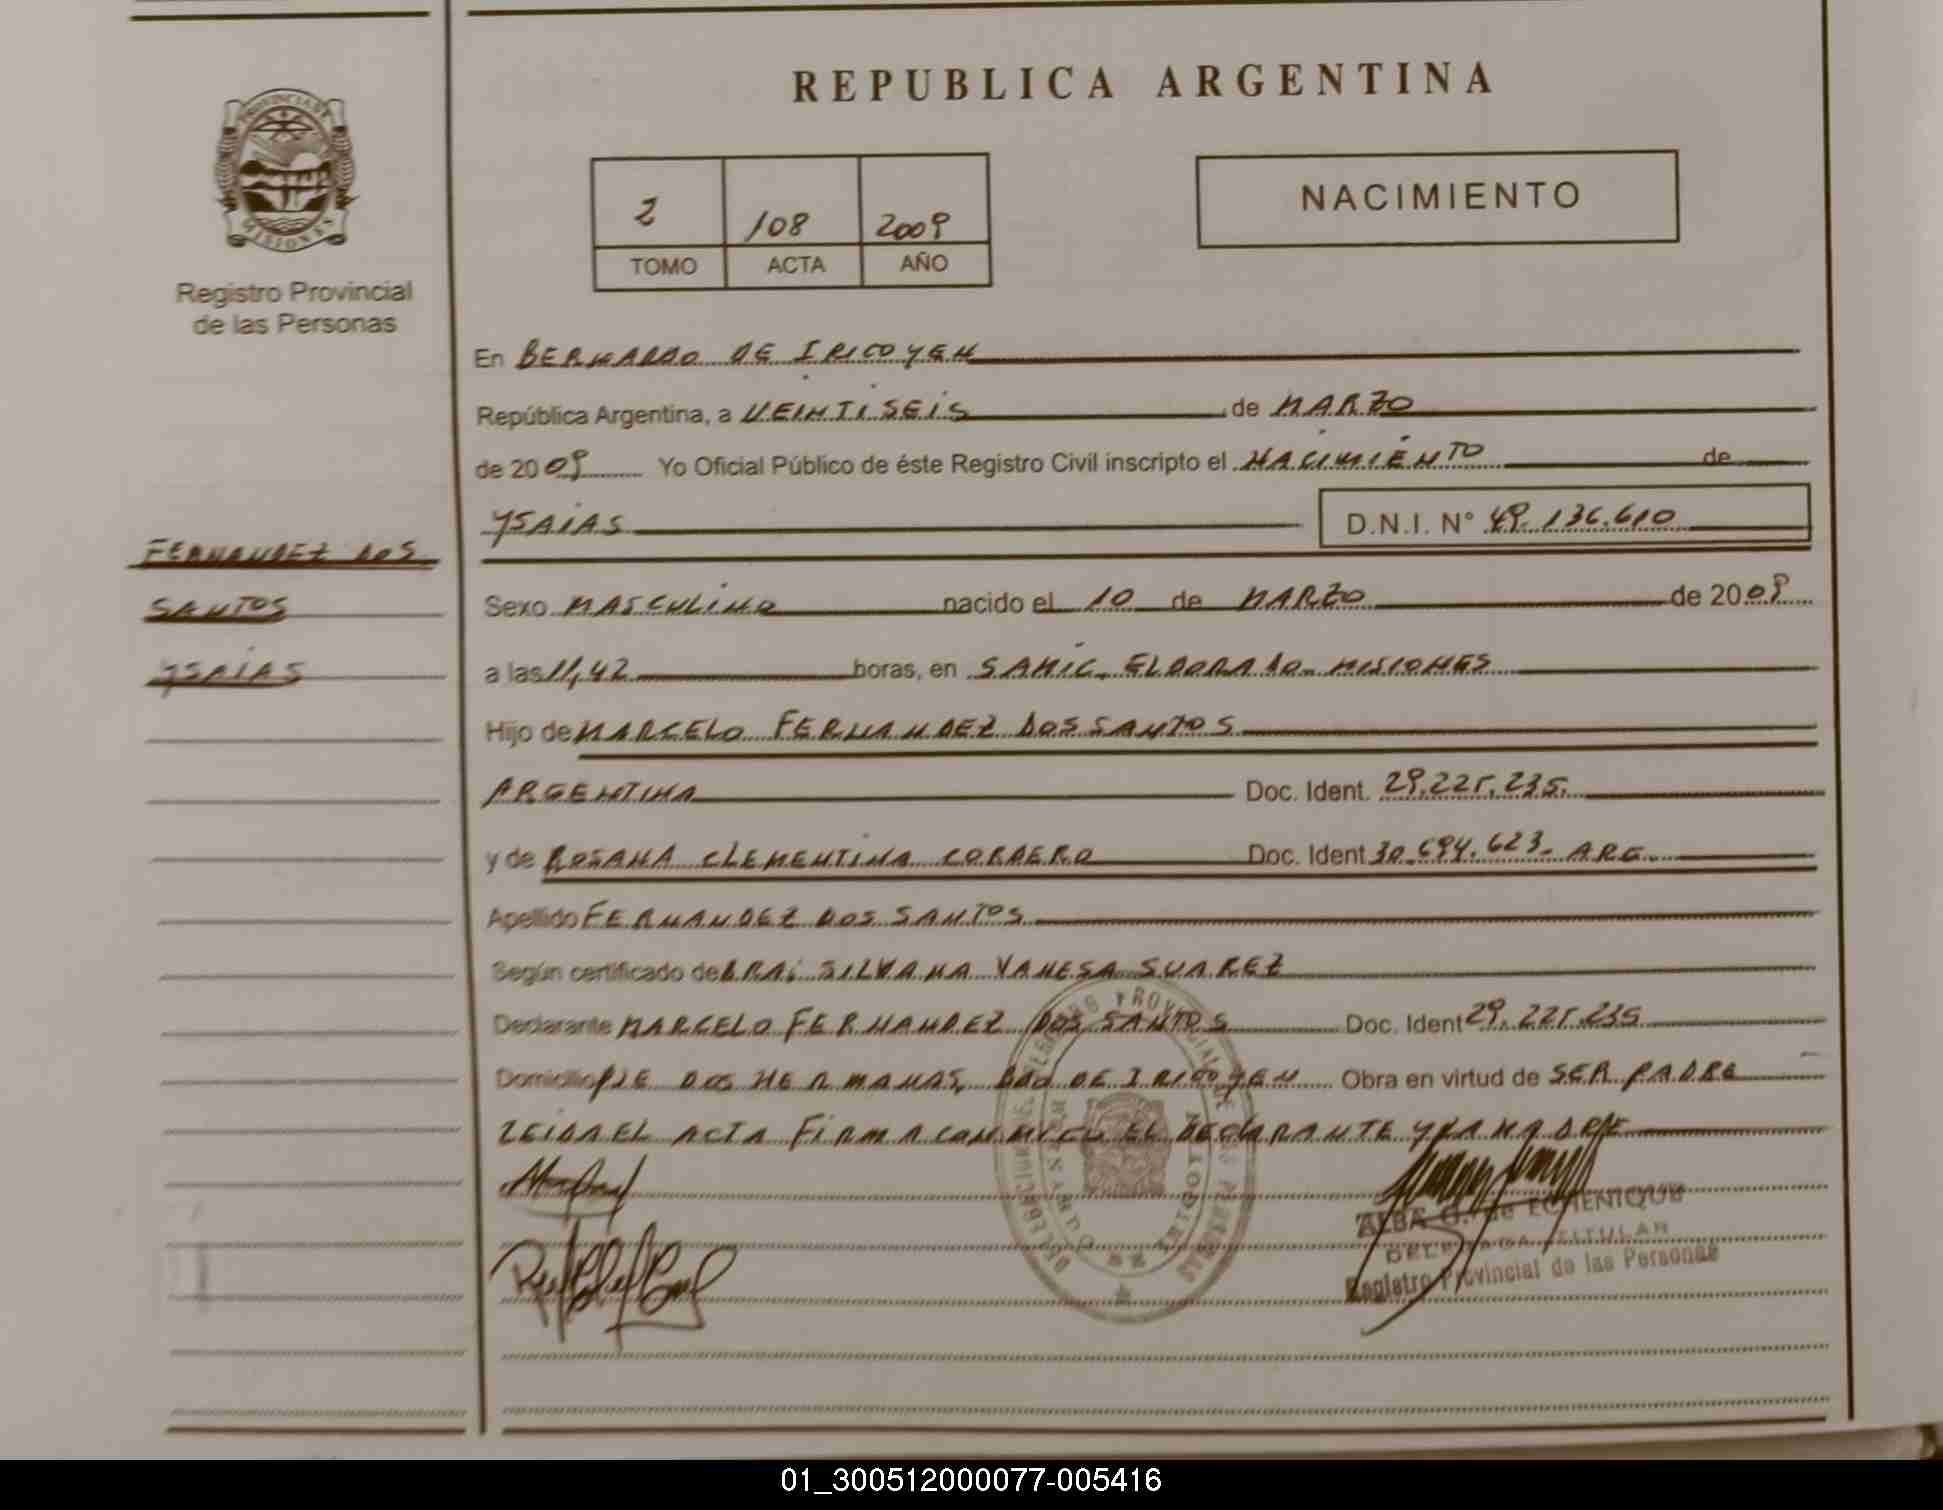 REPUBLICA ARGENTINA
PROVINCIA DE
MISIONES
Registro Provincial
de las Personas
2 108 2009
TOMO ACTA AÑO
NACIMIENTO
En BERNARDO DE IRIGOYEN
República Argentina, a VEINTISEIS de MARZO
de 2009 Yo Oficial Público de éste Registro Civil inscripto el NACIMIENTO de
YSAIAS D.N.I. N° 49.136.610
FERNANDEZ DOS
SANTOS
YSAIAS
Sexo MASCULINO nacido el 10 de MARZO de 2009
a las 11,42 horas, en SAMIC. ELDORADO-MISIONES
Hijo de MARCELO FERNANDEZ DOS SANTOS
ARGENTINA Doc. Ident. 29.225.235.
y de ROSANA CLEMENTINA CORDERO Doc. Ident 30.694.623- ARG.
Apellido FERNANDEZ DOS SANTOS
Según certificado de DRA: SILVANA VANESA SUAREZ
Declarante MARCELO FERNANDEZ DOS SANTOS Doc. Ident 29.225.235
Domicilio PJE DOS HERMANAS, BDO DE IRIGOYEN Obra en virtud de SER PADRE
LEIDA EL ACTA FIRMA CONMIGO EL DECLARANTE Y LA MADRE
ALBA G. de ECHENIQUE
DELEGADA TITULAR
Registro Provincial de las Personas
01_300512000077-005416